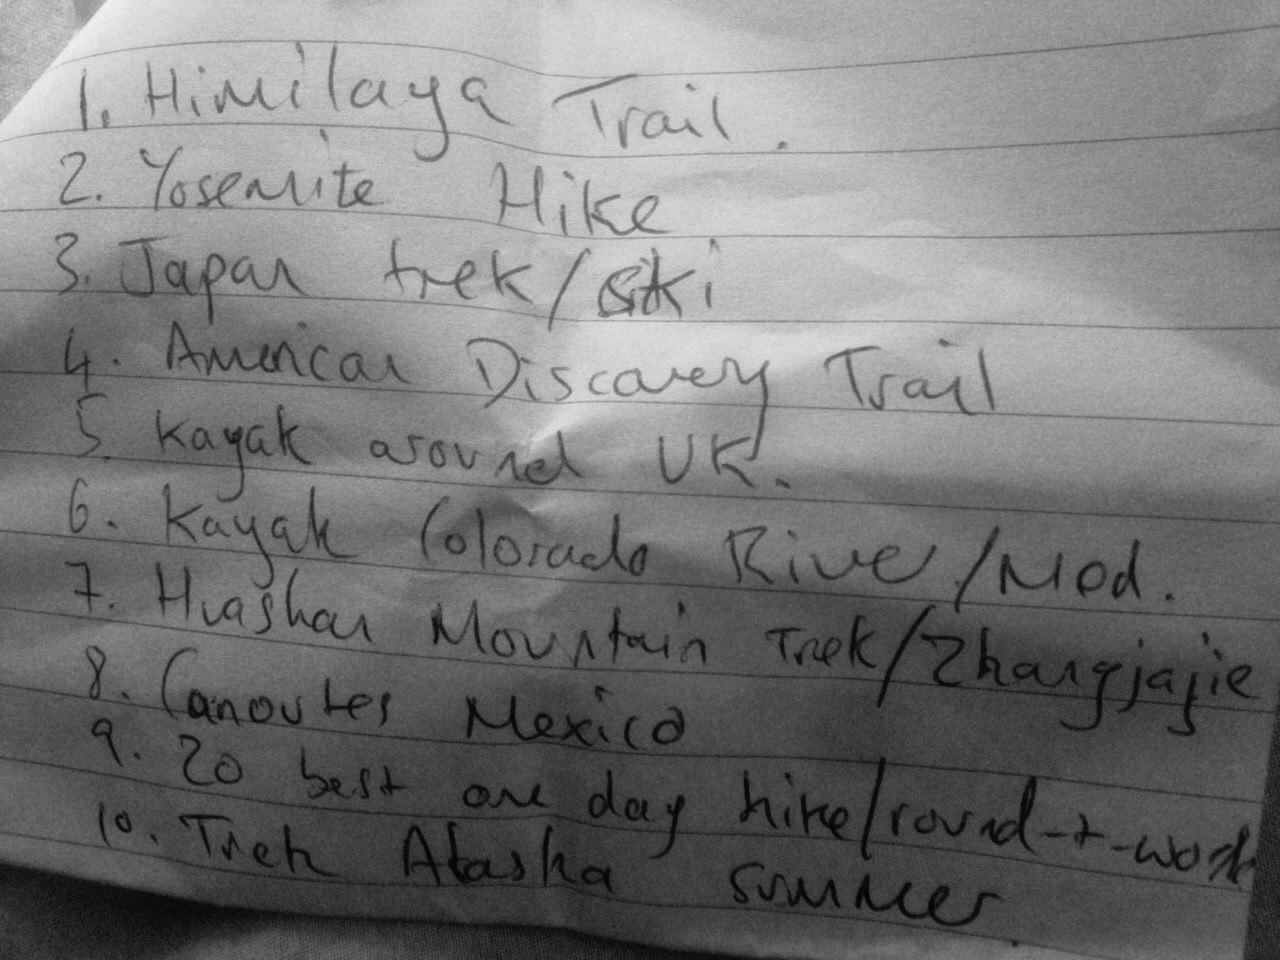 1. Himilaya Trail.
2. Yosemite Hike
3. Japan trek/ski
4. American Discovery Trail
5. Kayak around UK.
6. Kayak Colorado River/Mod.
7. Huashan Mountain Trek/Zhangjajie
8. Canoutes Mexico
9. 20 best one day hike/round-t-world
10. Trek Alaska summer.